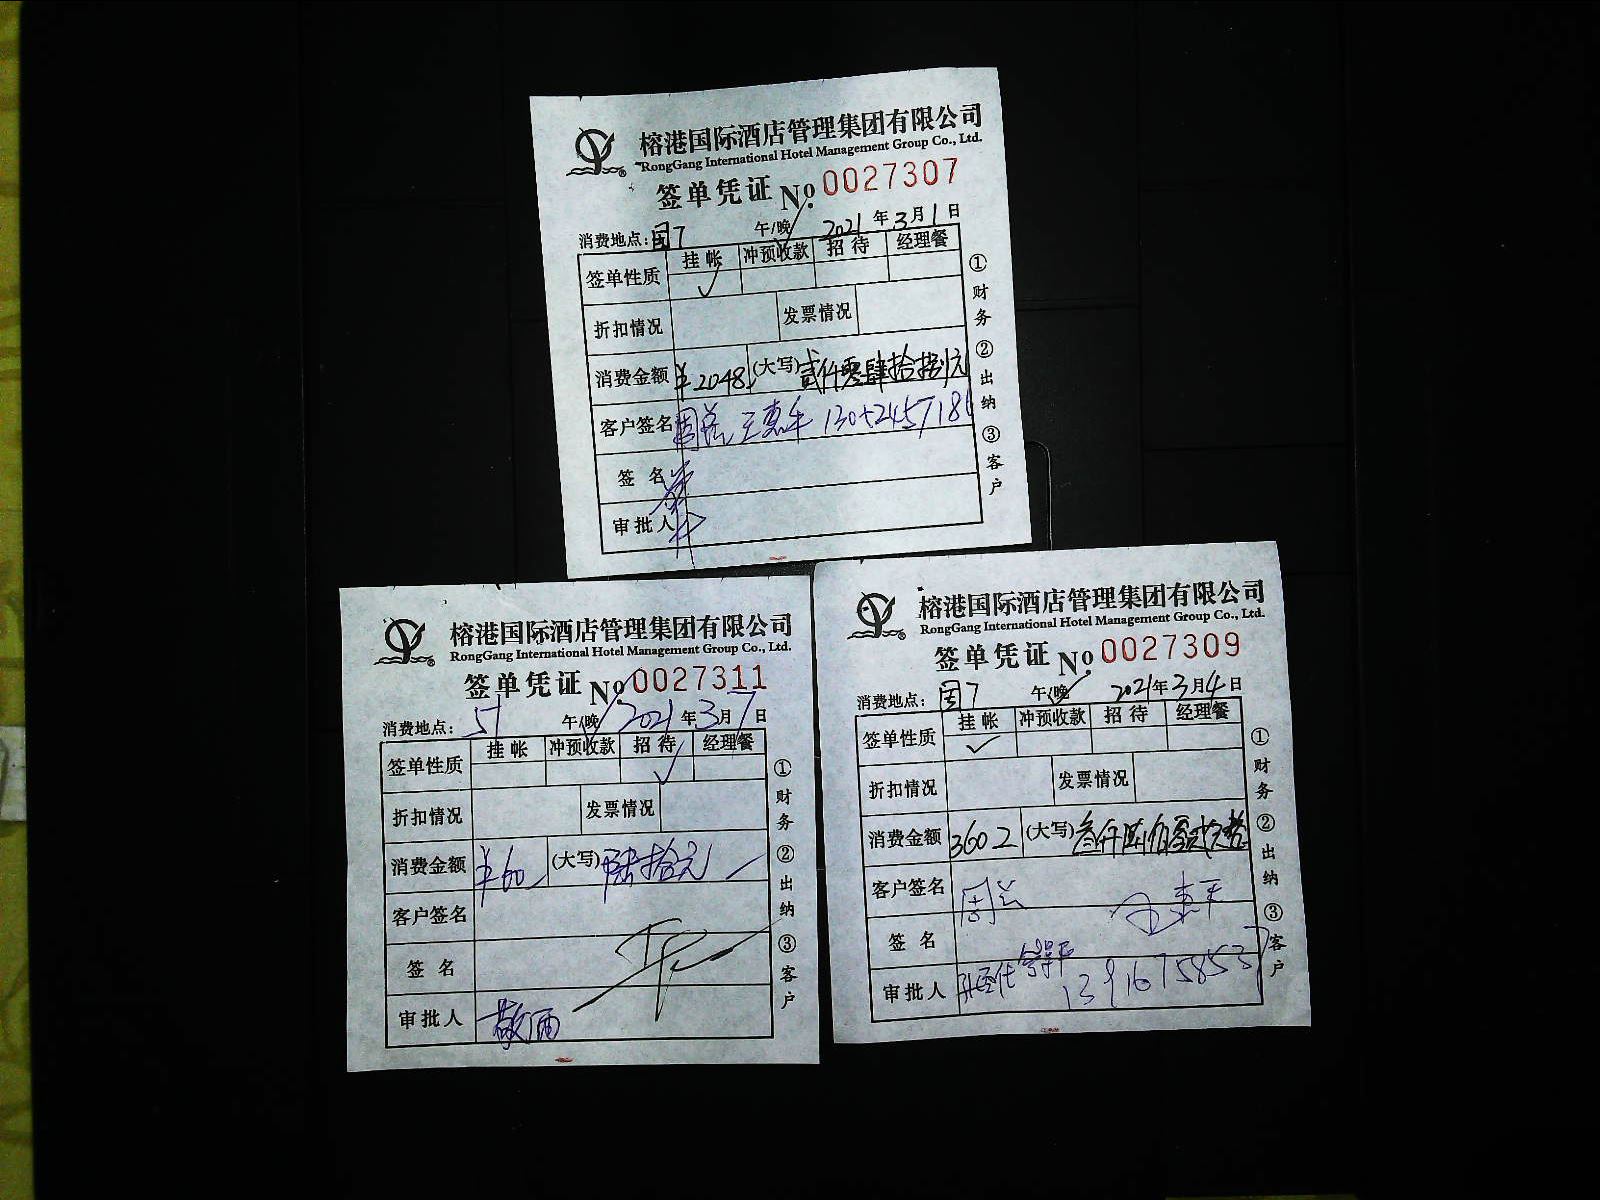 榕港国际酒店管理集团有限公司
RongGang International Hotel Management Group Co., Ltd.
签单凭证 No. 0027307
消费地点: 国7 午/晚 2021年3月1日
签单性质 挂帐 冲预收款 招待 经理餐
折扣情况 发票情况
消费金额 ¥2048 (大写) 贰仟零肆拾捌元
客户签名
签名
审批人
①财务 ②出纳 ③客户
榕港国际酒店管理集团有限公司
RongGang International Hotel Management Group Co., Ltd.
签单凭证 No. 0027311
消费地点: 51 午/晚 2021年3月7日
签单性质 挂帐 冲预收款 招待 经理餐
折扣情况 发票情况
消费金额 ¥60 (大写) 陆拾元
客户签名
签名
审批人
①财务 ②出纳 ③客户
榕港国际酒店管理集团有限公司
RongGang International Hotel Management Group Co., Ltd.
签单凭证 No. 0027309
消费地点: 国7 午/晚 2021年3月4日
签单性质 挂帐 冲预收款 招待 经理餐
折扣情况 发票情况
消费金额 3602 (大写) 叁仟陆佰零贰元整
客户签名 周兰
签名
审批人 13916758537
①财务 ②出纳 ③客户